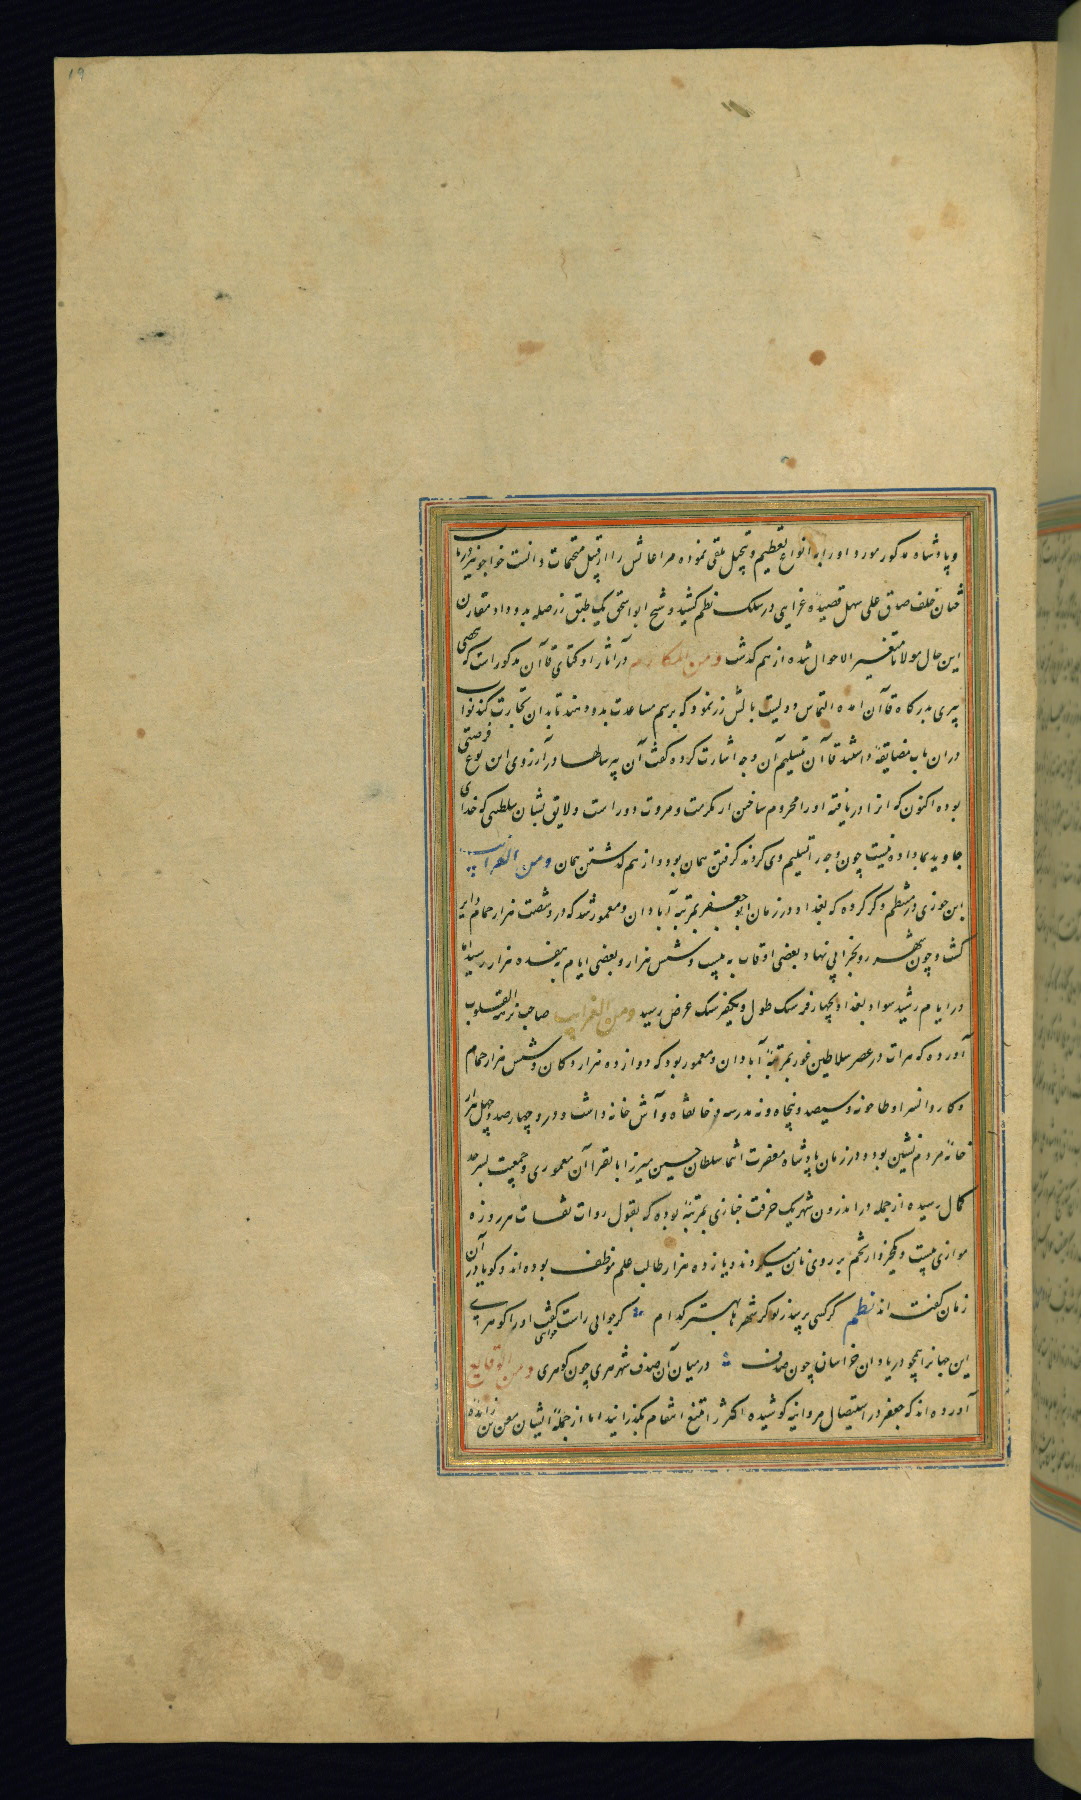 19
و پادشاه مذکور مورد او را به انواع تعظیم و تبجیل تلقی نموده مراعاتش را از قبیل متحتمات دانست خواجو نیز در باب
خان خلف صدق علی سهل قصیدهٔ غرایی در سلک نظم کشید و شیخ ابو اسحق یک طبق زر صله بدو داد مقارن
این حال مولانا متغیر الاحوال شده از هم گذشت ومن المکارم در آثار اوکتای قاآن مذکور است که شخصی
پیری بدرگاه قاآن آمده التماس دویست بالش زر نمود که برسم مساعدت بدو دهند تا بدان تجارت کند نواب
در ان باب مضایقه داشتند قاآن بتسلیم آن وجه اشارت کرده گفت آن پیر سالها در آرزوی این نوع فرصتی
بوده اکنون که انرا دریافته او را محروم ساختن از مکرمت و مروت دور است و لایق بشان سلطنتی که خدای
جاوید بما داده نیست چون وجه را تسلیم وی کردند گرفتن همان بود و از هم گذشتن همان ومن الغرایب
ابن جوزی در منتظم ذکر کرده که بغداد در زمان ابو جعفر بمرتبهٔ آبادان و معمور شد که درو شصت هزار حمام دایر
گشت و چون شهر رو بخرابی نهاد بعضی اوقات به بیست و شش هزار و بعضی ایام بهفده هزار رسید اما
در ایام رشید سواد بغداد بچهار فرسنگ طول و یکفرسنگ عرض رسید ومن الغرایب صاحب نزهة القلوب
آورده که هرات در عصر سلاطین غور بمرتبهٔ آبادان و معمور بود که دوازده هزار دکان و شش هزار حمام
و کاروانسرا و طاحونه و سیصد و پنجاه و نه مدرسه و خانقاه و آش خانه داشت و درو چهارصد و چهل هزار
خانهٔ مردم نشین بوده و در زمان پادشاه مغفرت انتما سلطان حسین میرزا بایقرا آن معموری و جمعیت بسرحد
کمال رسیده از جمله در اندرون شهر یک حرفت خبازی بمرتبهٔ بوده که بقول روات ثقات هر روزه
موازی بیست و یکخروار تخم بر روی نان میکردند و یازده هزار طالب علم موظف بوده‌اند و گویا در آن
زمان گفته‌اند نظم گر کسی پرسد ز تو کز شهرها بهتر کدام گر جوابی راست خواهی گفت او را گو هری
این جهانرا همچو دریا دان خراسان چون صدف در میان آن صدف شهر هری چون گوهری ومن الوقایع
آورده‌اند که جعفر در استیصال مروانیه کوشیده اکثر را بتیغ انتقام بگذرانید اما از جملهٔ ایشان معن بن زایده